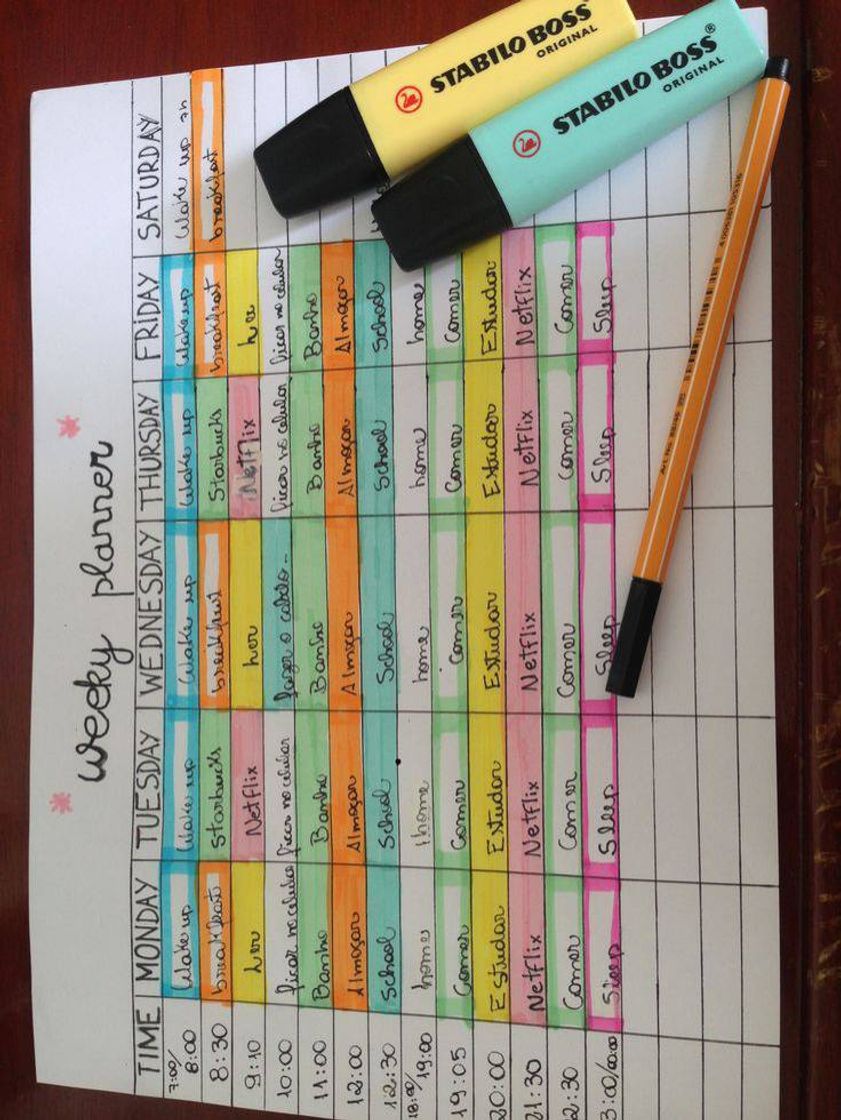 weeky planner
TIME MONDAY TUESDAY WEDNESDAY THURSDAY FRIDAY SATURDAY
7:00/8:00 Wake up Wake up Wake up Wake up Wake up Wake up
8:30 breakfast Starbucks breakfast Starbucks breakfast breakfast
9:10 ler Netflix ler Netflix ler
10:00 ficar no celular ficar no celular fazer o cabelo ficar no celular ficar no celular
11:00 Banho Banho Banho Banho Banho
12:00 Almoçar Almoçar Almoçar Almoçar Almoçar
12:30 School School School School School
18:00/19:00 home home home home home
19:05 Comer Comer Comer Comer Comer
20:00 Estudar Estudar Estudar Estudar Estudar
21:30 Netflix Netflix Netflix Netflix Netflix
22:30 Comer Comer Comer Comer Comer
3:00/00:00 Sleep Sleep Sleep Sleep Sleep
STABILO BOSS
ORIGINAL
STABILO BOSS®
ORIGINAL